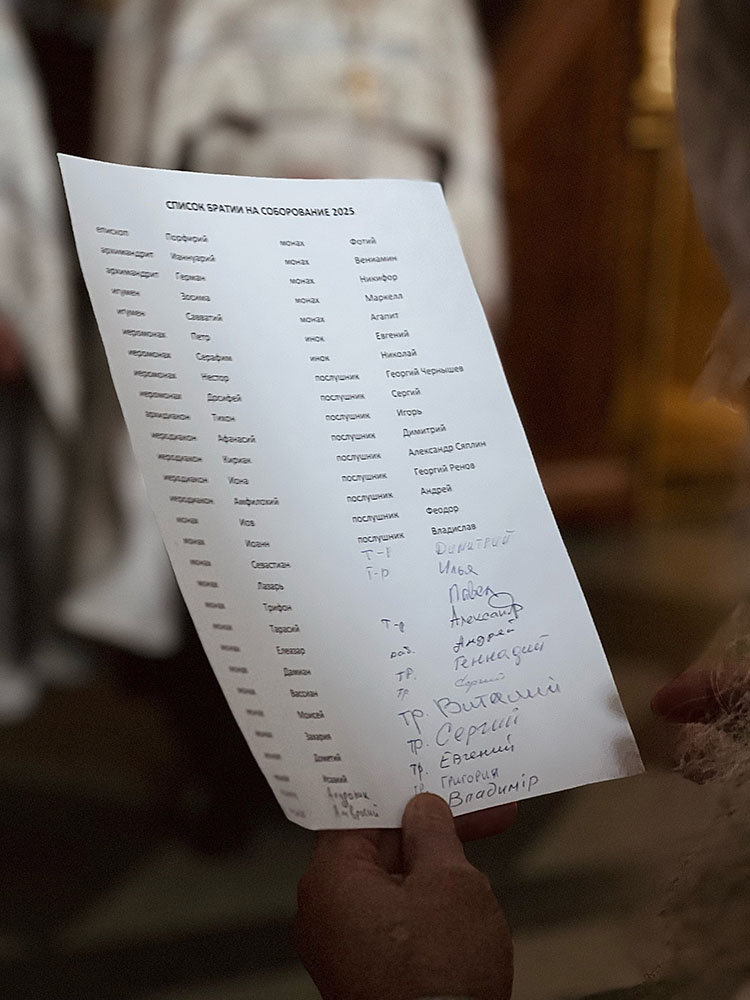 СПИСОК БРАТИИ НА СОБОРОВАНИЕ 2025
епископ Порфирий
архимандрит Ианнуарий
архимандрит Герман
игумен Зосима
игумен Савватий
иеромонах Петр
иеромонах Серафим
иеромонах Нестор
иеромонах Досифей
архидиакон Тихон
иеродиакон Афанасий
иеродиакон Кириак
иеродиакон Иона
иеродиакон Амфилохий
монах Иов
монах Иоанн
монах Севастиан
монах Лазарь
монах Трифон
монах Тарасий
монах Елеазар
монах Дамиан
монах Вассиан
монах Моисей
монах Захария
монах Дометий
монах
монах
монах Амвросий
монах Фотий
монах Вениамин
монах Никифор
монах Маркелл
монах Агапит
инок Евгений
инок Николай
послушник Георгий Чернышев
послушник Сергий
послушник Игорь
послушник Димитрий
послушник Александр Сяплин
послушник Георгий Ренов
послушник Андрей
послушник Феодор
послушник Владислав
Т-р Димитрий
Т-р Илья
Павел
Т-р Александр
Андрей
тр. Геннадий
тр Сергий
тр. Виталий
тр. Сергий
тр. Евгений
тр Григория
Владимір